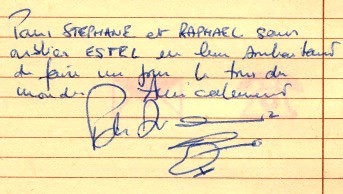 Pour STEPHANE et RAPHAEL sans
oublier ESTEL en leur souhaitant
de faire un jour le tour du
monde. Amicalement